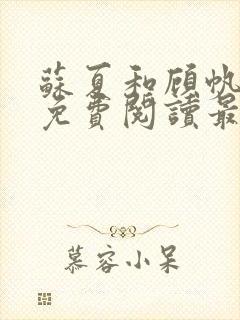 蘇夏和顧帆
免費閱讀最
慕容小呆